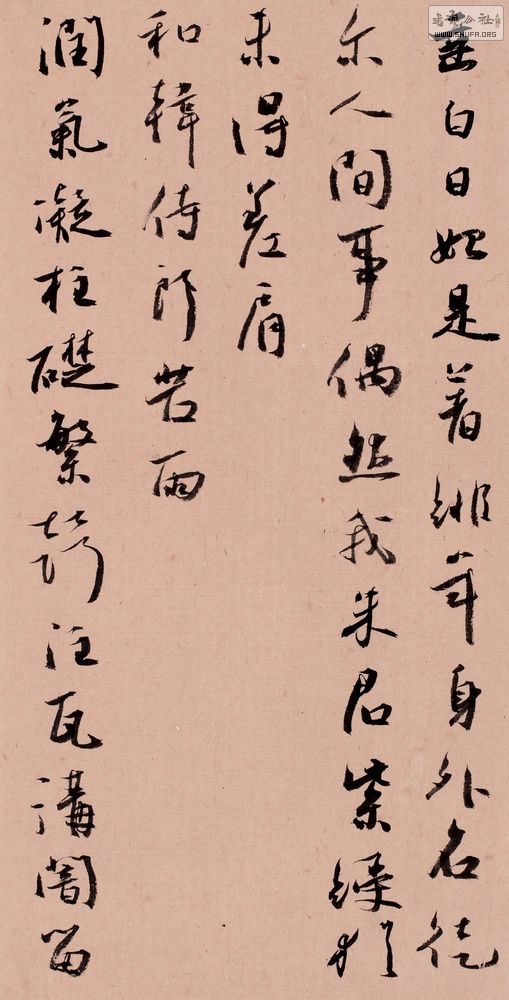 垂白日始是著緋年身外名徒
尔人間事偶然我朱君紫綬猶
未得差肩
和韓侍郎苦雨
潤氣凝柱礎繁聲注瓦溝闇留
書法公社
WWW.SHUFA.ORG